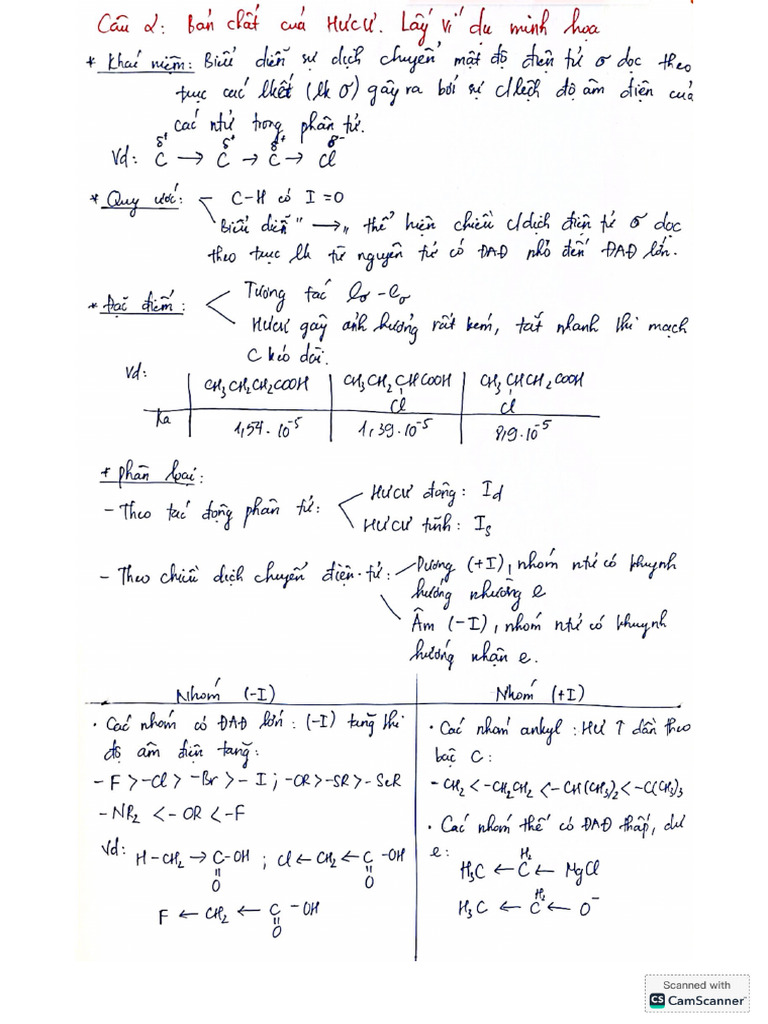 Câu 2: Bản chất của HƯCƯ. Lấy ví dụ minh họa
* Khái niệm: Biểu diễn sự dịch chuyển mật độ điện tử σ dọc theo
trục các lkết (lk σ) gây ra bởi sự c/lệch độ âm điện của
các ntử trong phân tử.
δ+ δ+ δ+ δ-
Vd: C → C → C → Cl
* Quy ước: - C-H có I = 0
Biểu diễn "→" thể hiện chiều c/dịch điện tử σ dọc
theo trục lk từ nguyên tử có ĐAĐ nhỏ đến ĐAĐ lớn.
* Đặc điểm: Tương tác eσ - eσ
HƯCƯ gây ảnh hưởng rất kém, tắt nhanh khi mạch
C kéo dài.
Vd: CH3CH2CH2COOH | CH3CH2CHCOOH | CH3CHCH2COOH
Cl Cl
Ka | 1,54.10^-5 | 1,39.10^-5 | 8,9.10^-5
+ Phân loại:
- Theo tác động phân tử: HƯCƯ động: Id
HƯCƯ tĩnh: Is
- Theo chiều dịch chuyển điện tử: Dương (+I), nhóm ntử có khuynh
hướng nhường e
Âm (-I), nhóm ntử có khuynh
hướng nhận e.
Nhóm (-I) | Nhóm (+I)
• Các nhóm có ĐAĐ lớn: (-I) tăng khi
độ âm điện tăng:
- F > -Cl > -Br > - I ; -OR > -SR > - SeR
- NR2 < - OR < -F
Vd: H - CH2 → C - OH ; Cl ← CH2 ← C - OH
O O
F ← CH2 ← C - OH
O
• Các nhóm ankyl: HƯ ↑ dần theo
bậc C:
- CH2 < - CH2CH2 < - CH(CH3)2 < - C(CH3)3
• Các nhóm thế có ĐAĐ thấp, dư
e:
H2
H3C ← C ← MgCl
H2
H3C ← C ← O-
Scanned with
CS CamScanner